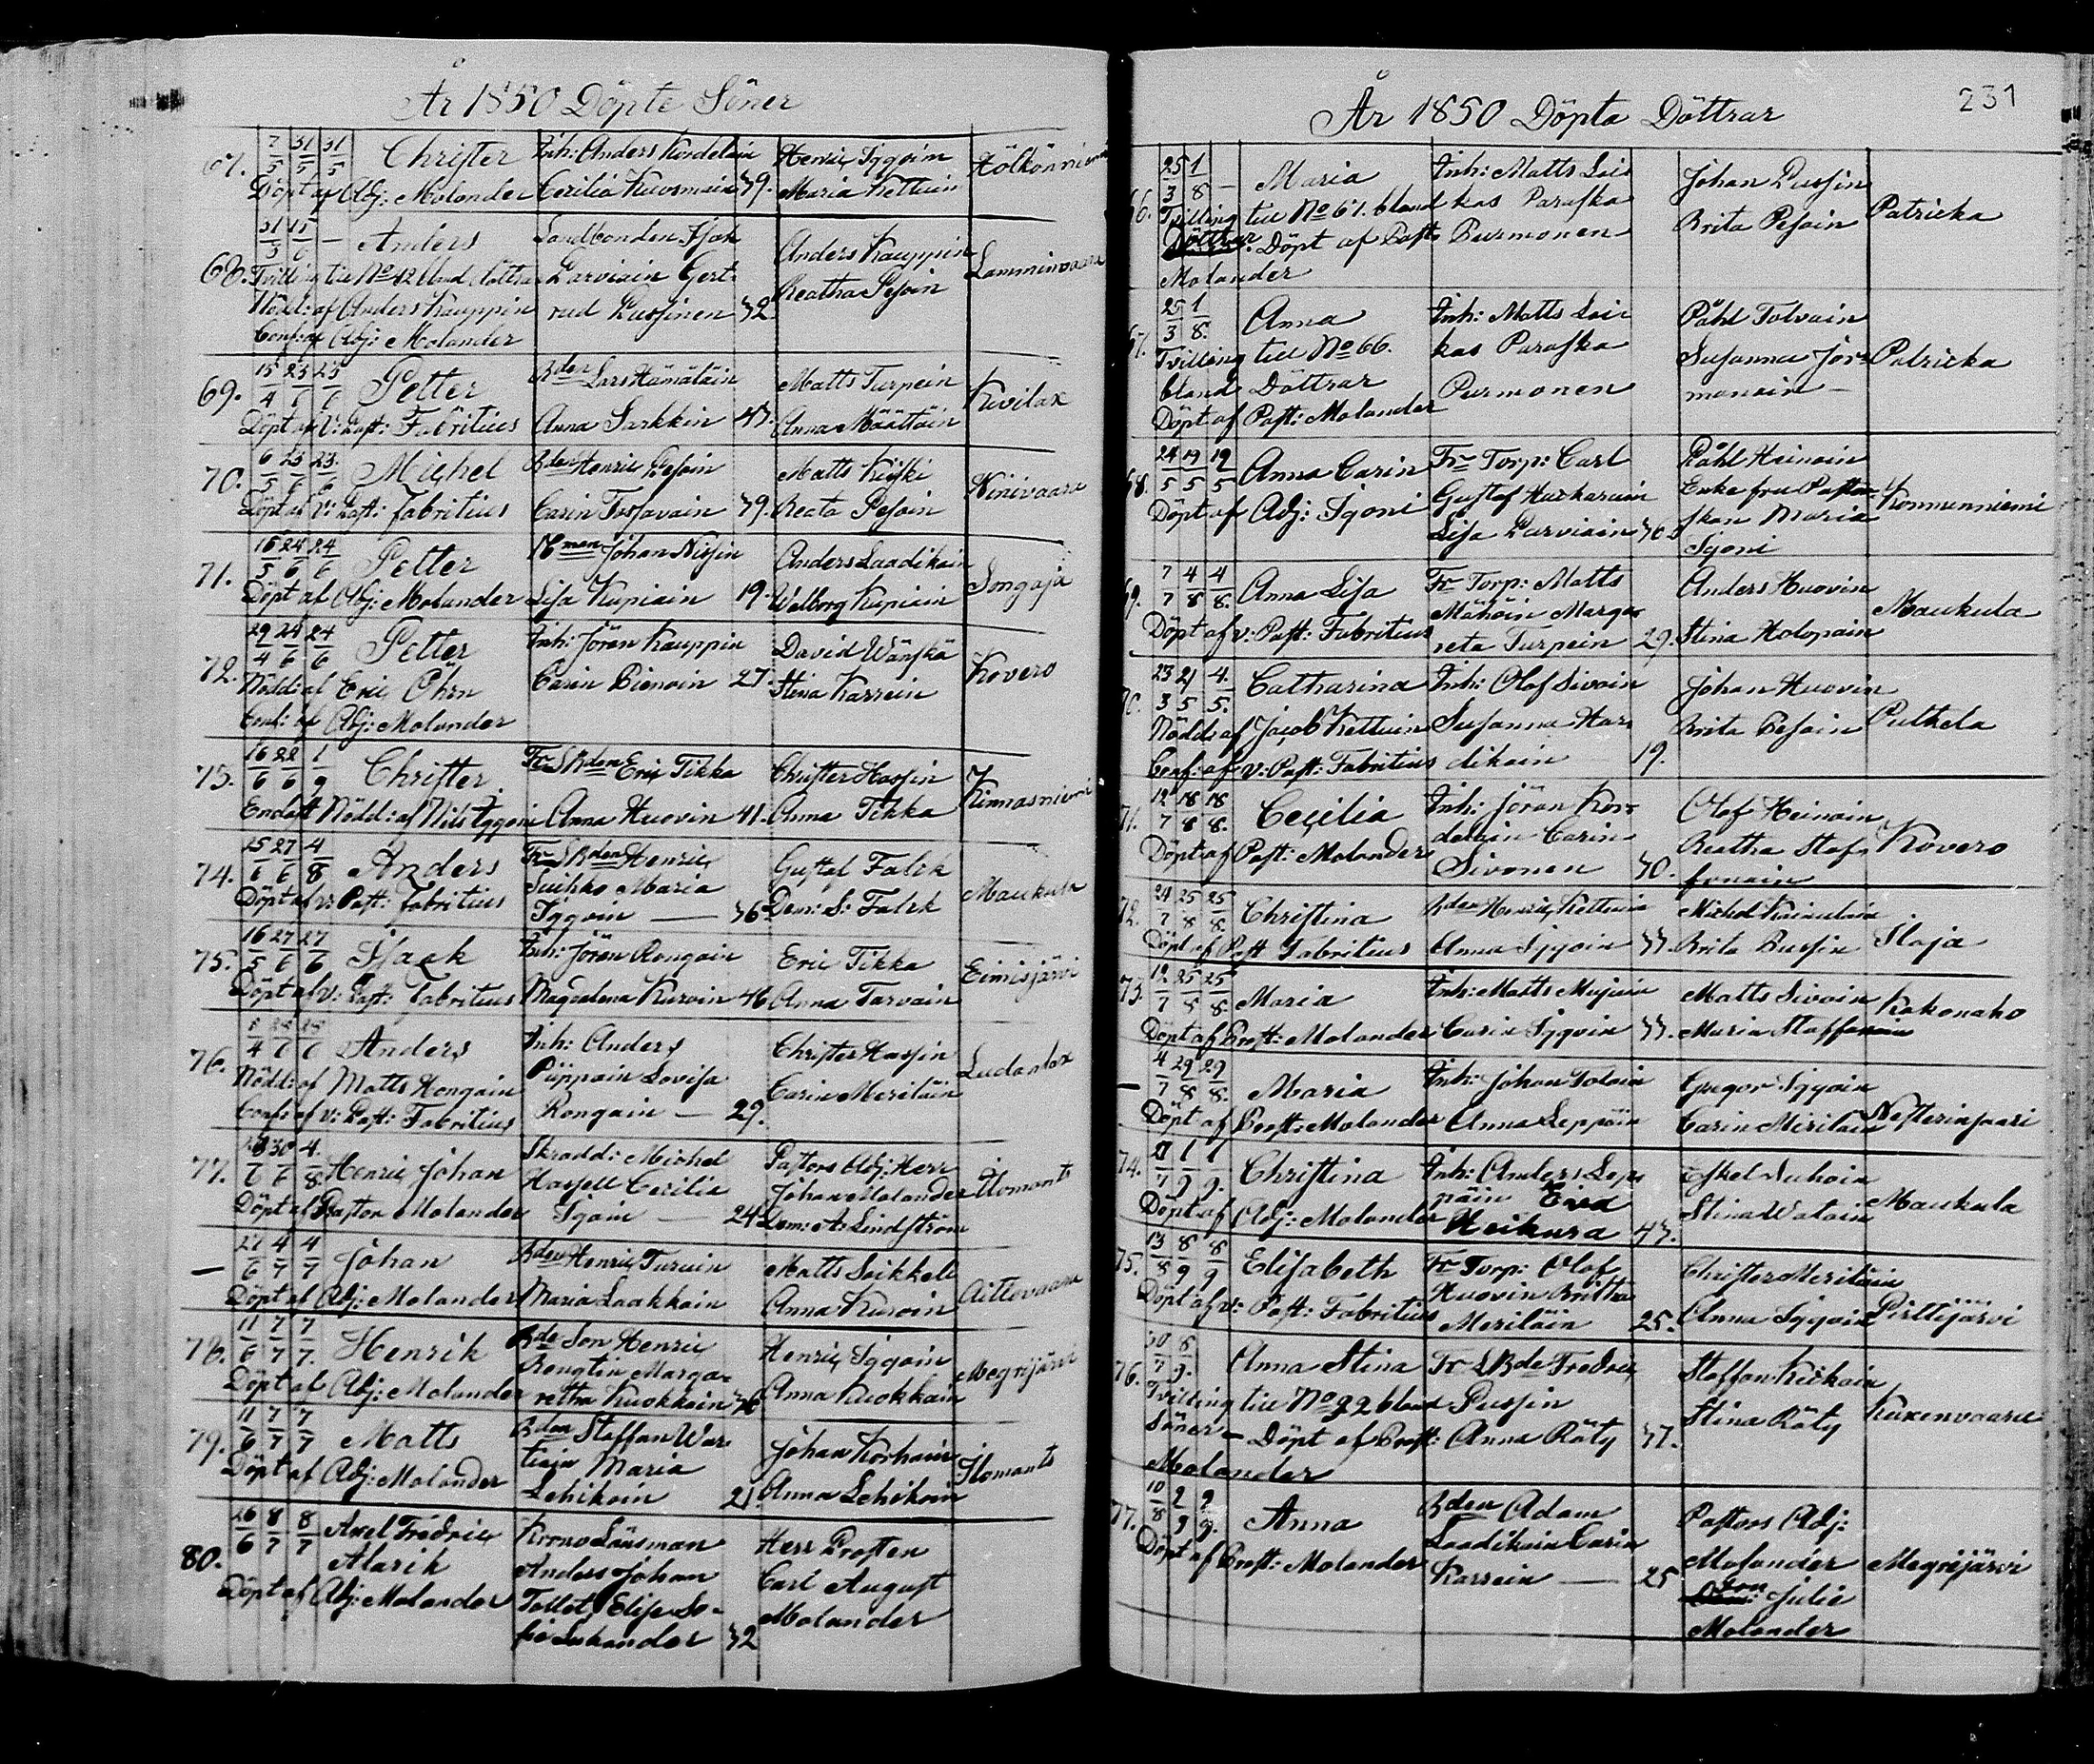 År 1850 Döpte Söner
67. 7/5 31/5 31/5 Christer Inh: Anders Kordelain Henric Iggoin Hölkönniemi
Döpt af Adj: Molander Cecilia Kuosmain 39. Maria Kettuin
68. 31/3 15/6 – Anders Landbonden Isak Anders Kauppin Lamminvaara
Tvilling till No 42 bland Döttrar Parviain Gert- Reatha Pesoin
Nödd: af Anders Kauppin rud Pussinen 32
Conf: af Adj: Molander
69. 15/4 23/6 23/6 Petter Bden Lars Hämäläin Matts Turpein Kivilax
Döpt af V: Past: Fabritius Anna Sarkkin 43. Anna Määttäin
70. 6/5 23/6 23/6 Michel Bden Henric Pesoin Matts Kiiski Ninivaara
Döpt af V: Past: Fabritius Carin Tossavain 39. Reata Pesoin
71. 16/5 24/6 24/6 Petter Johan Nissin Anders Laadikain Songaja
Döpt af Adj: Molander Lisa Kupiain 19. Walborg Kupiain
72. 29/4 24/6 24/6 Petter Inh: Jöran Kauppin David Wänskä Kovero
Nödd: af Eric Öhrn Carin Pienoin 27. Stina Karrein
Conf: af Adj: Molander
73. 16/6 22/6 1/9 Christer Fr SBden Eric Tikka Christer Hassin Kinnasniemi
Endast Nödd: af Nils Iggoin Anna Huovin 41. Anna Tikka
74. 25/6 27/6 4/8 Anders Fr SBden Henric Gustaf Falck Maukula
Döpt af v: Past: Fabritius Suihko Maria Dem: S: Falck
Iggoin — 36.
75. 16/5 27/6 27/6 Isaak Inh: Jöran Rongain Eric Tikka Eimisjärvi
Döpt af v: Past: Fabritius Magdalena Kurvin 46. Anna Tarvain
76. Anders Inh: Anders Christer Hassin Ludanlax
Nödd: af Matts Hongain Piippain Lovisa Carin Meriläin
Conf: af v: Past: Fabritius Rongain — 29.
77. 30/6 4/8 Henric Johan Skradd: Michel Pastors Adj: Herr Ilomants
Döpt af Pastor Molander Hassell Cecilia Johan Molander
Igoin — 24. Dem: A: Lindström
— 21/6 4/7 4/7 Johan Bden Henric Turuin Matts Leikkeli Aittovaara
Döpt af Adj: Molander Maria Laakkain Anna Kuroin
78. 11/6 7/7 7/7 Henrik Bde Son Henric Henric Iggoin Megrijärvi
Döpt af Adj: Molander Rengtin Marga- Anna Kuokkain
retha Kuokkain 36
79. 11/6 7/7 7/7 Matts Bden Staffan War- Johan Korhoin Ilomants
Döpt af Adj: Molander tiain Maria Anna Lehikoin
Lehikoin 21.
80. 26/6 8/7 8/7 Axel Fredric Krono Länsman Herr Prosten
Alarik Anders Johan Carl August
Döpt af Adj: Molander Tollet, Elise So- Molander
fie Lukander 32
231
År 1850 Döpta Döttrar
66. 25/3 1/8 – Maria Inh: Matts Loi- Johan Pussin Patricka
Tvilling till No 67. bland kas Paraska Brita Pesoin
Döttrar. Döpt af Past: Purmonen
Molander
67. 25/3 1/8. Anna Inh: Matts Loi- Påhl Tolvain Patricka
Tvilling till No 66. kas Paraska Susanna Jor-
bland Döttrar Purmonen manain —
Döpt af Past: Molander
68. 24/5 19/5 19/5 Anna Carin Fr Torp: Carl Påhl Heinoin Konnunniemi
Döpt af Adj: Igoni Gustaf Huskaruin Enke fru Pastor-
Lisa Parviain 30. skan Maria
Igoni
69. 7/7 4/8 4/8. Anna Lisa Fr Torp: Matts Anders Huovin Maukula
Döpt af v: Past: Fabritius Mähöin Marga- Stina Holopain
reta Turpein 29.
70. 23/3 21/5 4/5. Catharina Inh: Olof Sivoin Johan Huovin Putkela
Nödd: af Jacob Kettuin Susanna Har- Brita Pesoin
Conf: af v: Past: Fabritius dikain 19.
71. 12/7 18/8 18/8. Cecilia Inh: Jöran Kor- Olof Heinoin Kovero
Döpt af Past: Molander delain Carin Reatha Staf-
Sivonen 30. fanain
72. 24/7 25/8 25/8. Christina Bden Henric Kettuin Michel Kainulain Ilaja
Döpt af Past Fabritius Anna Iggoin 33. Brita Pussin
73. 12/7 25/8 25/8. Maria Inh: Matts Mujuin Matts Sivoin Kokonaho
Döpt af Prost: Molander Carin Iggoin 33. Maria Staffanain
— 4/7 29/8 29/8. Maria Inh: Johan Toloin Gregor Iggoin Nesterinsaari
Döpt af Prost: Molander Anna Leppäin Carin Meriläin
74. 27/7 1/9 1/9. Christina Inh: Anders Lep- Eskel Suhoin Maukula
Döpt af Adj: Molander päin Eva Stina Watain
Heikura 43.
75. 13/8 8/9 8/9 Elisabeth Fr Torp: Olof Christer Meriläin Piittijärvi
Döpt af v: Past: Fabritius Huovin Britha Anna Iggoin
Meriläin 25.
76. 30/7 8/9. Anna Stina Fr LBde Fredric Staffan Kickain Kuxenvaara
Tvilling till No 92 bland Pussin Stina Räty
Söner – Döpt af Prost: Anna Räty 37.
Molander
77. 10/8 2/9 2/9. Anna Bden Adam Pastors Adj: Megrijärvi
Döpt af Prost: Molander Laadikain Carin Molander
Karrein — 25 Julie
Molander